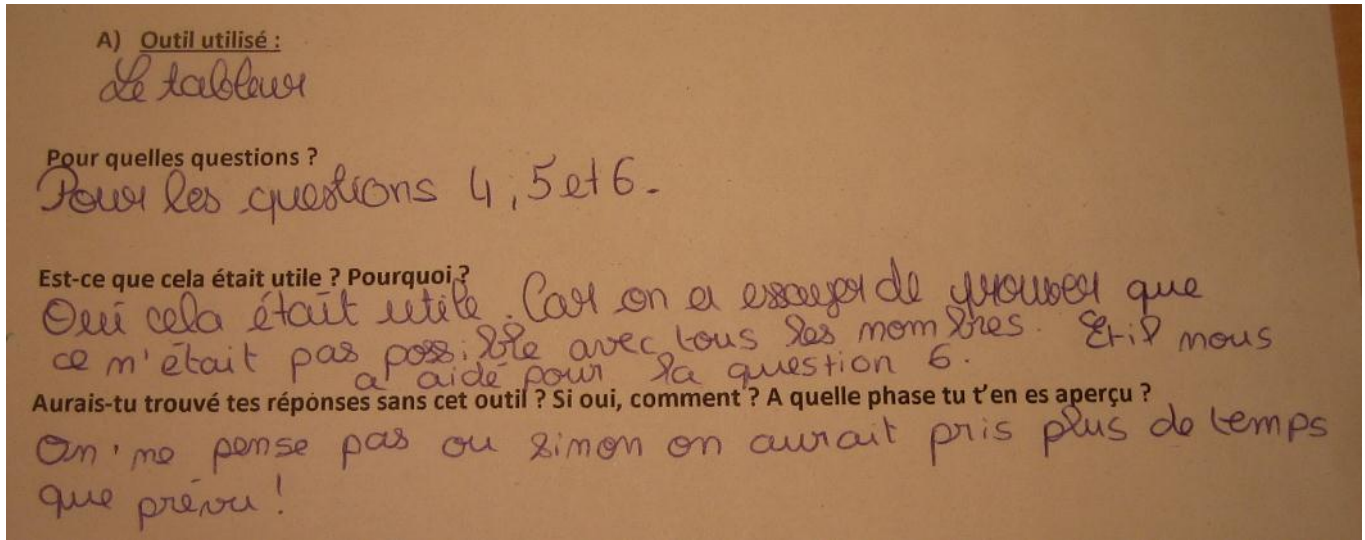 A) Outil utilisé :
Le tableur
Pour quelles questions ?
Pour les questions 4, 5 et 6.
Est-ce que cela était utile ? Pourquoi ?
Oui cela était utile. Car on a essayer de prouver que
ce n'était pas possible avec tous les nombres. Et il nous
a aidé pour la question 6.
Aurais-tu trouvé tes réponses sans cet outil ? Si oui, comment ? A quelle phase tu t'en es aperçu ?
On ne pense pas ou sinon on aurait pris plus de temps
que prévu !